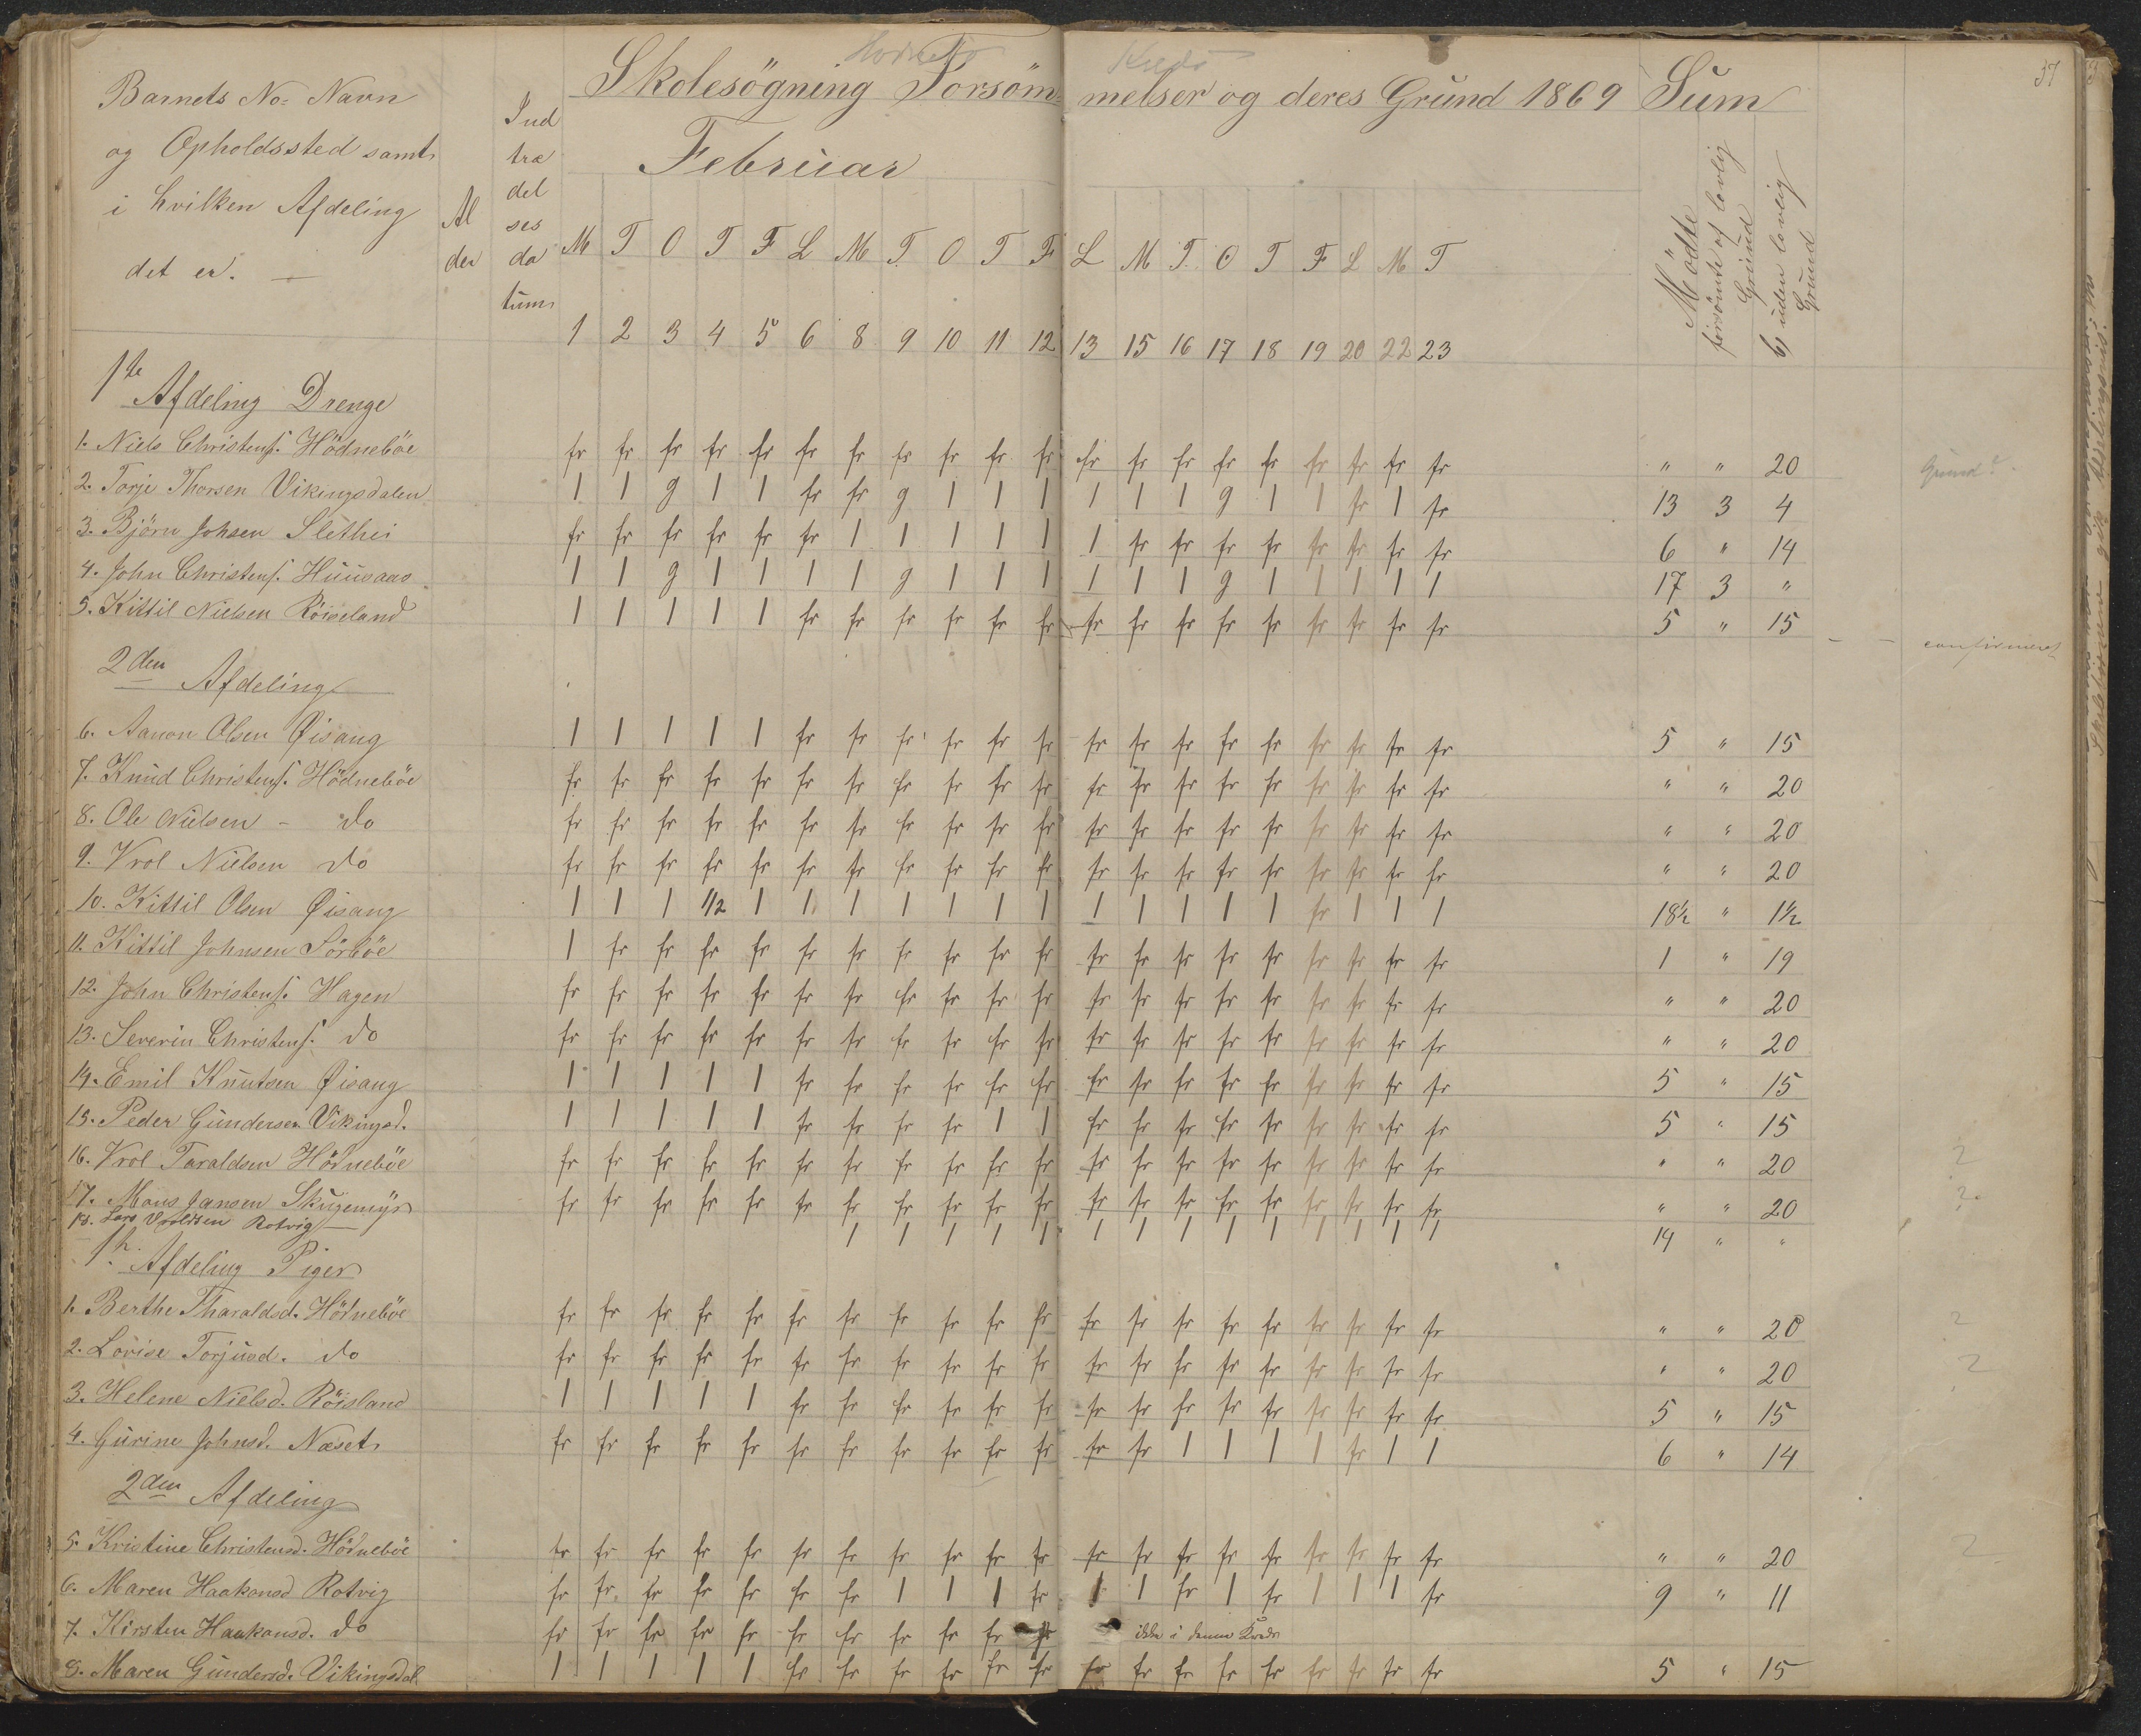 Skolesögning Forsöm= melser og deres Grund 1869 Sum
37
Kreds
Barnets No= Navn
og Opholdssted samt
i hvilken Afdeling
det er. —
Al
der
Ind
træ
del
ses
da
tum
Februar
Mödte
forsömte af lovlig
Grund
b) uden lovlig
Grund
M T O T F L M T O T F L M T O T F L M T
1 2 3 4 5 6 8 9 10 11 12 13 15 16 17 18 19 20 22 23
1ste Afdeling Drenge
1. Niels Christens. Hödneböe fr fr fr fr fr fr fr fr fr fr fr fr fr fr fr fr fr fr fr fr " " 20 Grund?
2. Torje Thorsen Vikingsdalen 1 1 g 1 1 fr fr g 1 1 1 1 1 1 g 1 1 fr 1 fr 13 3 4
3. Björn Johsen Slethei fr fr fr fr fr fr 1 1 1 1 1 1 fr fr fr fr fr fr fr fr 6 " 14
4. John Christens. Huusaas 1 1 g 1 1 1 1 g 1 1 1 1 1 1 g 1 1 1 1 1 17 3 "
5. Kittil Nielsen Röiseland 1 1 1 1 1 fr fr fr fr fr fr fr fr fr fr fr fr fr fr fr 5 " 15 — — confirmeret
2den Afdeling
6. Aanon Olsen Øisang 1 1 1 1 1 fr fr fr fr fr fr fr fr fr fr fr fr fr fr fr 5 " 15
7. Knud Christens. Hödneböe fr fr fr fr fr fr fr fr fr fr fr fr fr fr fr fr fr fr fr fr " " 20
8. Ole Nielsen - do fr fr fr fr fr fr fr fr fr fr fr fr fr fr fr fr fr fr fr fr " " 20
9. Vrol Nielsen do fr fr fr fr fr fr fr fr fr fr fr fr fr fr fr fr fr fr fr fr " " 20
10. Kittil Olsen Øisang 1 1 1 1/2 1 1 1 1 1 1 1 1 1 1 1 1 fr 1 1 1 18½ " 1½
11. Kittil Johnsen Sörböe 1 fr fr fr fr fr fr fr fr fr fr fr fr fr fr fr fr fr fr fr 1 " 19
12. John Christens. Hagen fr fr fr fr fr fr fr fr fr fr fr fr fr fr fr fr fr fr fr fr " " 20
13. Severin Christens. do fr fr fr fr fr fr fr fr fr fr fr fr fr fr fr fr fr fr fr fr " " 20
14. Emil Knutsen Øisang 1 1 1 1 1 fr fr fr fr fr fr fr fr fr fr fr fr fr fr fr 5 " 15
15. Peder Gundersen Vikingsd. 1 1 1 1 1 fr fr fr fr 1 1 fr fr fr fr fr fr fr fr fr 5 " 15
16. Vrol Taraldsen Hödneböe fr fr fr fr fr fr fr fr fr fr fr fr fr fr fr fr fr fr fr fr " " 20 ?
17. Mons Jansen Skugemyr fr fr fr fr fr fr fr fr fr fr fr fr fr fr fr fr fr fr fr fr " " 20 ?
18. Lars Vroldsen Rotvig 1 1 1 1 1 1 1 1 1 1 1 1 1 1 14 " "
1ste Afdeling Piger
1. Berthe Tharaldsd. Hödneböe fr fr fr fr fr fr fr fr fr fr fr fr fr fr fr fr fr fr fr fr " " 20 ?
2. Lovise Torjusd. do fr fr fr fr fr fr fr fr fr fr fr fr fr fr fr fr fr fr fr fr " " 20 ?
3. Helene Nielsd. Röisland 1 1 1 1 1 fr fr fr fr fr fr fr fr fr fr fr fr fr fr fr 5 " 15
4. Gurine Johnsd. Næset fr fr fr fr fr fr fr fr fr fr fr fr fr 1 1 1 1 fr 1 1 6 " 14
2den Afdeling
5. Kristine Christensd. Hödneböe fr fr fr fr fr fr fr fr fr fr fr fr fr fr fr fr fr fr fr fr " " 20 ?
6. Maren Haakonsd Rotvig fr fr fr fr fr fr fr 1 1 1 fr 1 1 fr 1 fr 1 1 1 fr 9 " 11
7. Kirsten Haakonsd. do fr fr fr fr fr fr fr fr fr fr fr ikke i denne Kreds
8. Maren Gundersd. Vikingsdal 1 1 1 1 1 fr fr fr fr fr fr fr fr fr fr fr fr fr fr fr 5 " 15